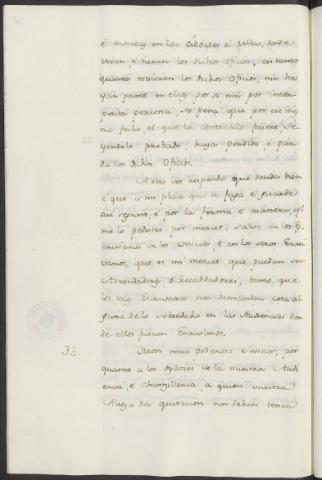 é moren en las Cibdades é Villas, donde
viven, é tienen los dichos oficios, en tanto
quanto tovieren los dichos oficios, nin ha
yan parte en ellas por sí nin por inter
posita persona, so pena que por ese mis
mo fecho, el que lo contrario ficiere se
yendole probado haya perdido é pier
da los dichos oficios.
A esto vos respondo que decides bien
é que á mi place que se faga é guarde
así segunt, é por la forma é manera, q.
me lo pedistes por merced, salvo en los E
scrivanos de los é en los otros Escri
vanos, que es mi merced que puedan ser
Arrendadores é Recabdadores, tanto, que
los tales Escrivanos non demanden cosa al
guna de lo sobredicho en las Audiencias don
de ellos fueren Escrivanos.
34. Otrosi muy poderoso Sennor, por
quanto á los oydores de la vuestra Audi
encia, é Chanzilleria á quien vuestra
Alteza da quitacion non deben tener